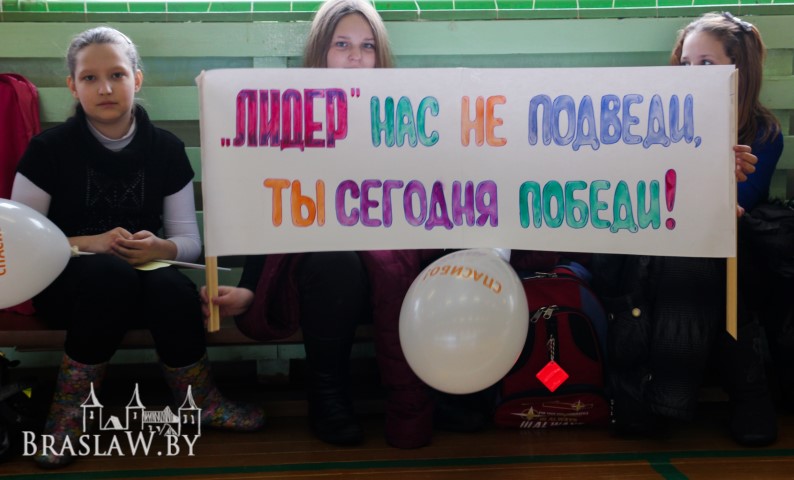 „ЛИДЕР" НАС НЕ ПОДВЕДИ,
ТЫ СЕГОДНЯ ПОБЕДИ!
СПАСИБО!
BRASLAW.BY